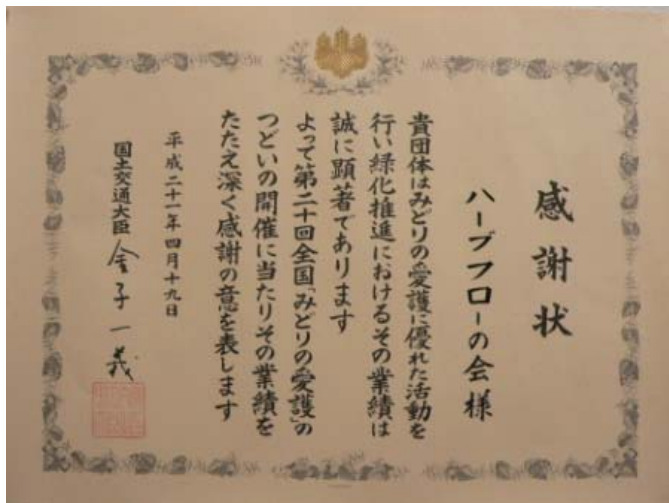 感謝状
ハーブフローの会様
貴団体はみどりの愛護に優れた活動を
行い緑化推進におけるその業績は
誠に顕著であります
よって第二十回全国「みどりの愛護」の
つどいの開催に当たりその業績を
たたえ深く感謝の意を表します
平成二十一年四月十九日
国土交通大臣 金子一義